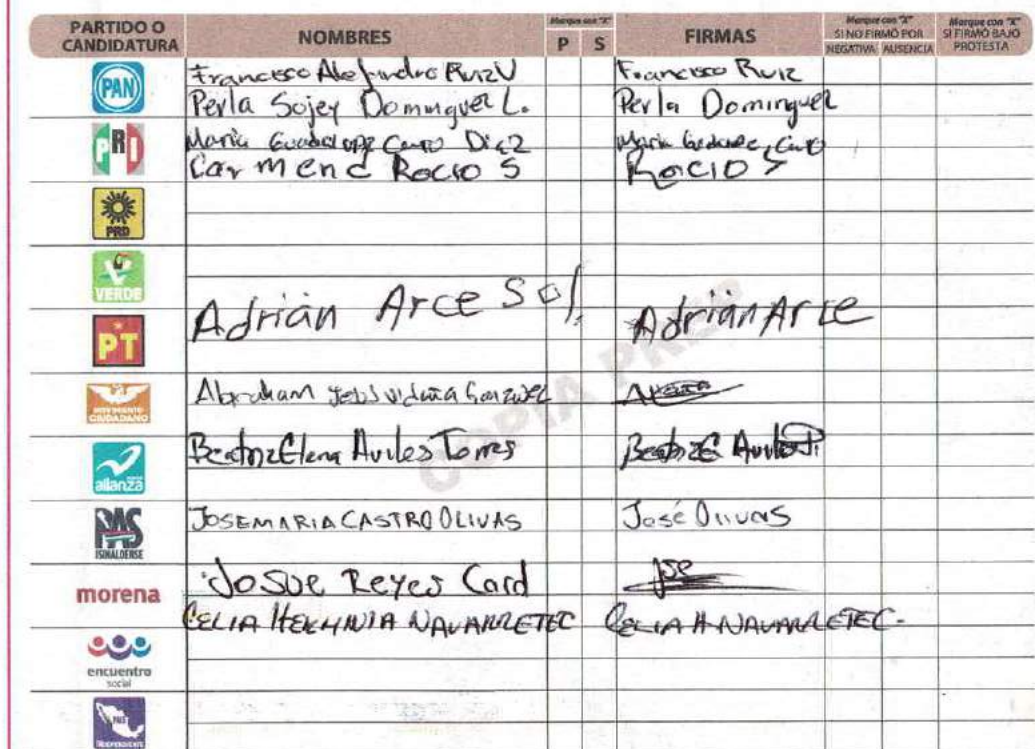 PARTIDO O CANDIDATURA
NOMBRES
Marque con "X"
P S
FIRMAS
Marque con "X" SI NO FIRMÓ POR
NEGATIVA AUSENCIA
Marque con "X" SI FIRMÓ BAJO PROTESTA
PAN
Francisco Alejandro Ruiz V
Francisco Ruiz
Perla Sojey Dominguez L.
Perla Dominguez
PRI
Maria Guadalupe Diaz
Maria
Carmena Rocio S
Rocio S
PRD
VERDE
Adrián Arce Sol.
Adrián Arce
PT
MOVIMIENTO CIUDADANO
Abraham
alianza
Beatriz Elena Aviles Torres
Beatriz E Aviles T.
PAS
SINALOENSE
JOSEMARIA CASTRO OLIVAS
José Olivas
morena
Josue Reyes Card
Jse
CELIA HERMINIA NAVARRETE C
CELIA H NAVARRETE C.
encuentro social
INDEPENDIENTE
COPIA PREP